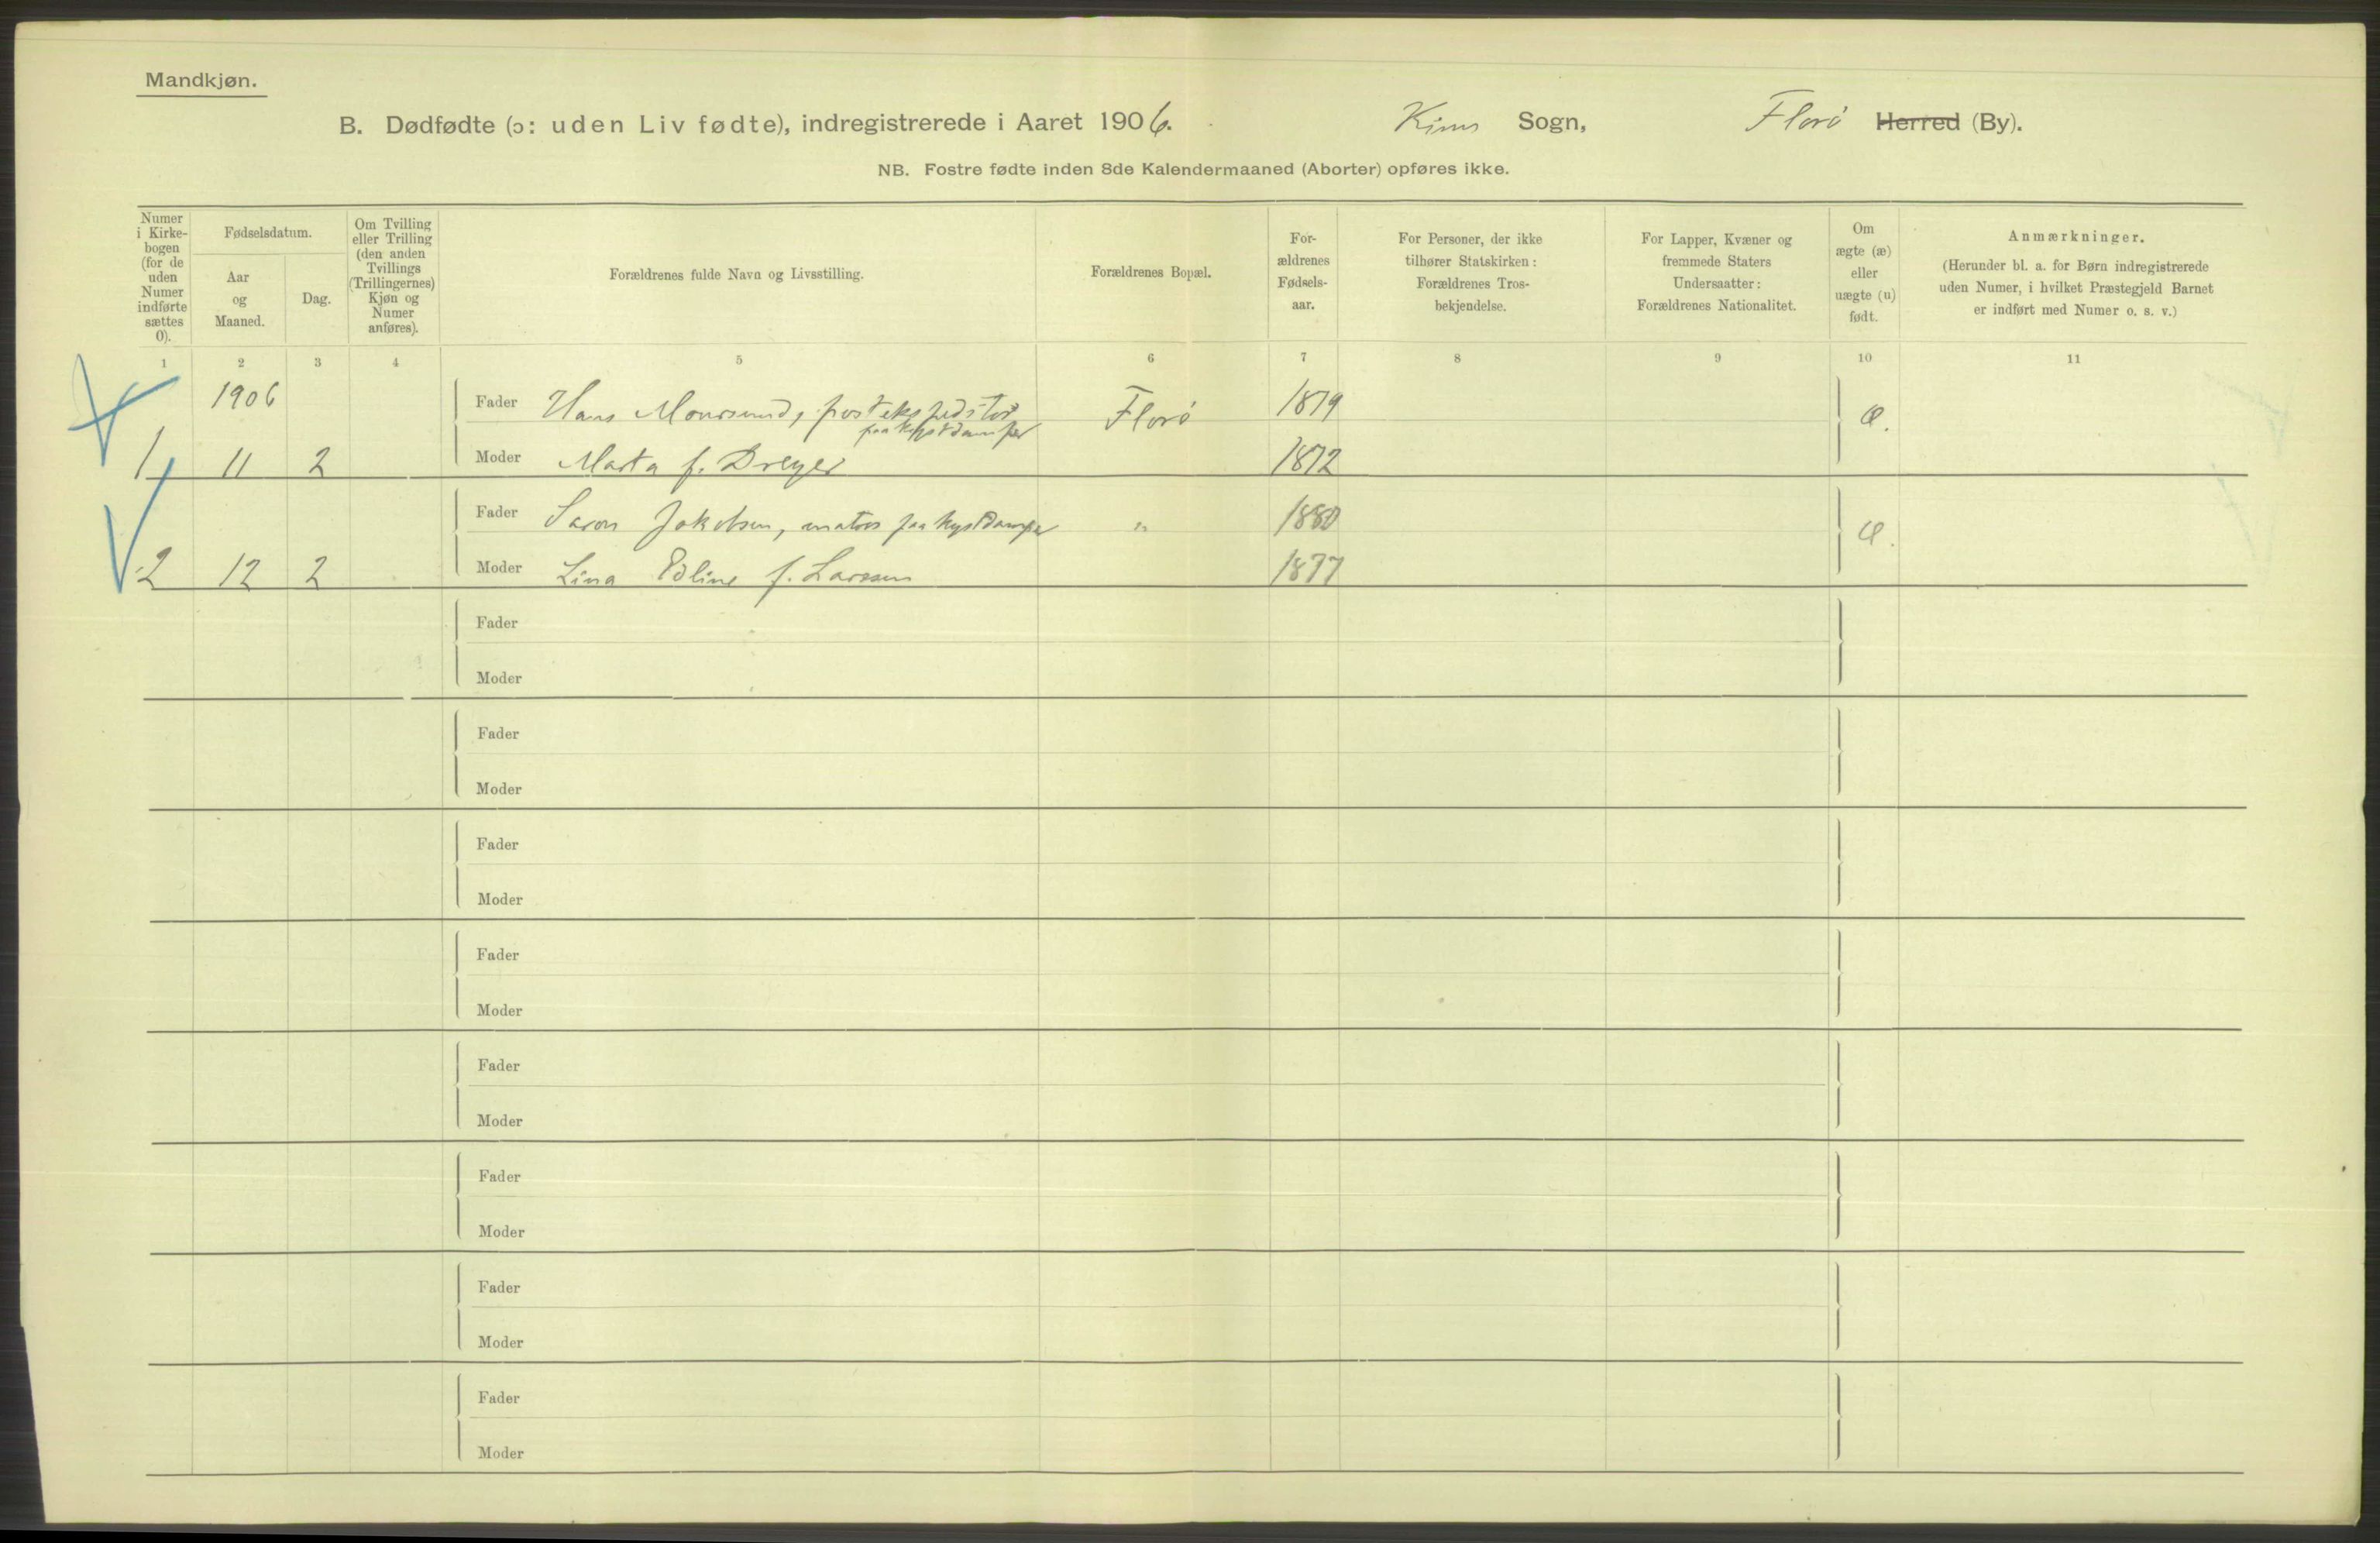 Mandkjøn.
B. Dødfødte (ɔ: uden Liv fødte), indregistrerede i Aaret 1906. Kinn Sogn, Florö Herred (By).
NB. Fostre fødte inden 8de Kalendermaaned (Aborter) opføres ikke.
Numer i Kirke-bogen (for de uden Numer indførte sættes 0).
Fødselsdatum.
Aar og Maaned.
Dag.
Om Tvilling eller Trilling (den anden Tvillings (Trillingernes) Kjøn og Numer anføres).
Forældrenes fulde Navn og Livsstilling.
Forældrenes Bopæl.
For-ældrenes Fødsels-aar.
For Personer, der ikke tilhører Statskirken: Forældrenes Tros-bekjendelse.
For Lapper, Kvæner og fremmede Staters Undersaatter: Forældrenes Nationalitet.
Om ægte (æ) eller uægte (u) født.
Anmærkninger.
(Herunder bl. a. for Børn indregistrerede uden Numer, i hvilket Præstegjeld Barnet er indført med Numer o. s. v.)
1 2 3 4 5 6 7 8 9 10 11
1906 Fader Hans Moursund, postekspeditör Florö 1879 æ.
paa kystdamper
1 11 2 Moder Marta f. Dreyer 1872
Fader Saron Jakobsen, matros paa kystdamper " 1880 æ.
2 12 2 Moder Lina Edline f. Larssen 1877
Fader
Moder
Fader
Moder
Fader
Moder
Fader
Moder
Fader
Moder
Fader
Moder
Fader
Moder
Fader
Moder